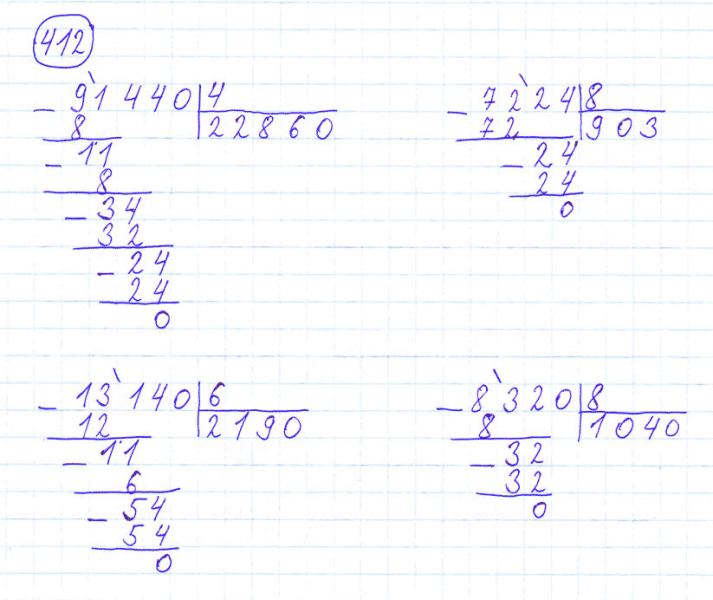 412
91440 4
8 22860
11
8
34
32
24
24
0
7224 8
72 903
24
24
0
13140 6
12 2190
11
6
54
54
0
8320 8
8 1040
32
32
0